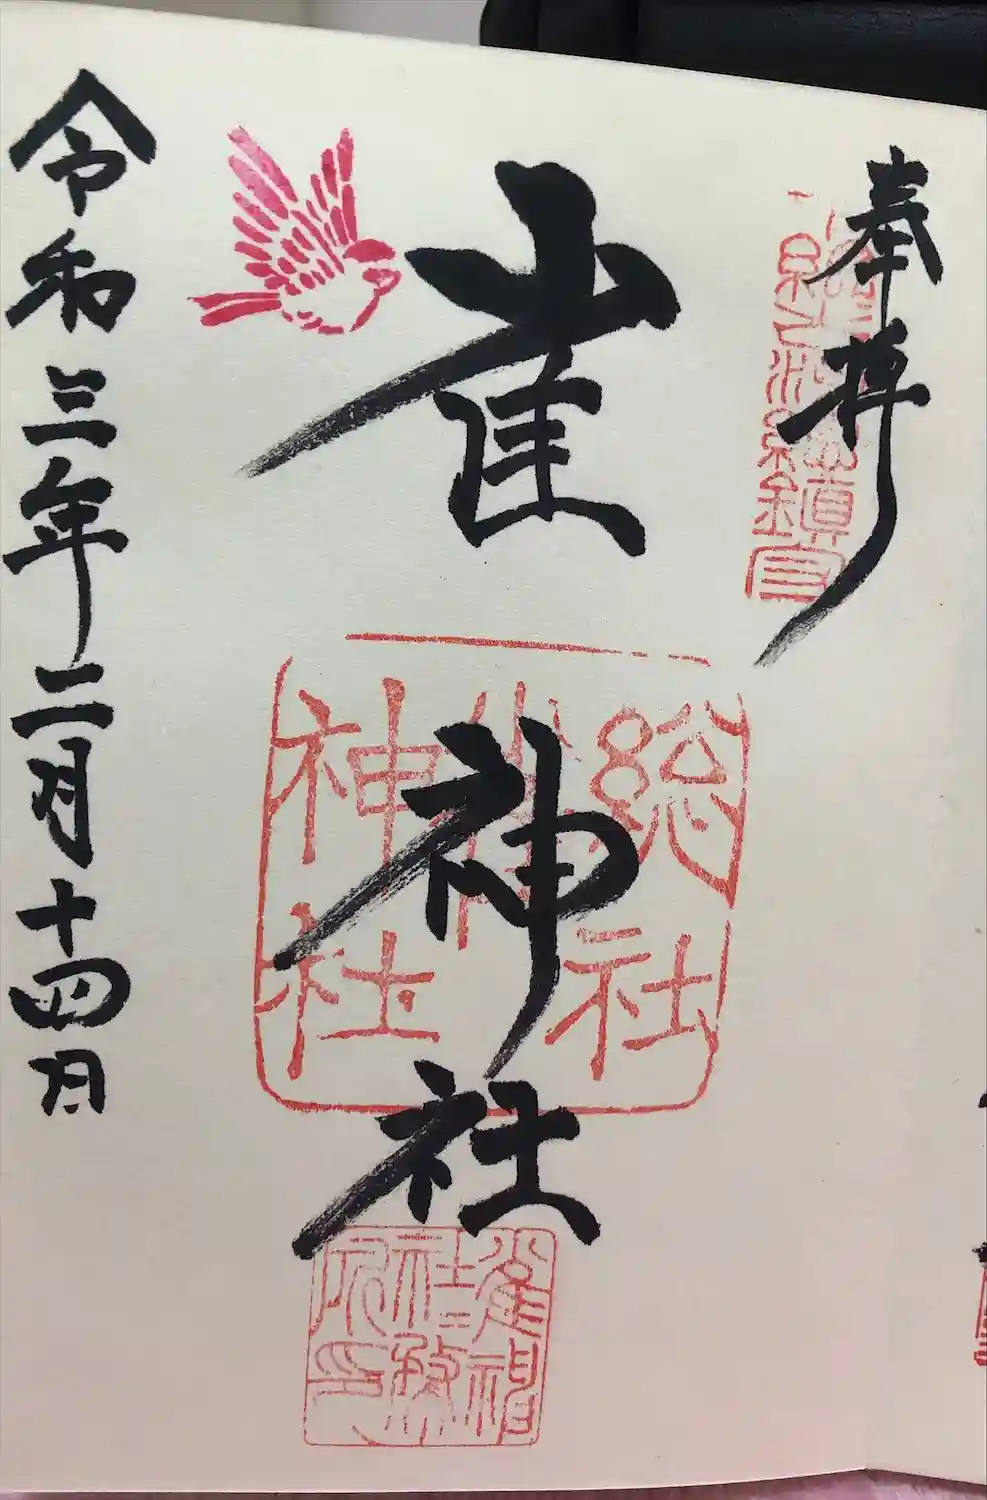 奉拝
雀神社
総社
雀
神社
雀神
社務
所印
令和三年二月十四日